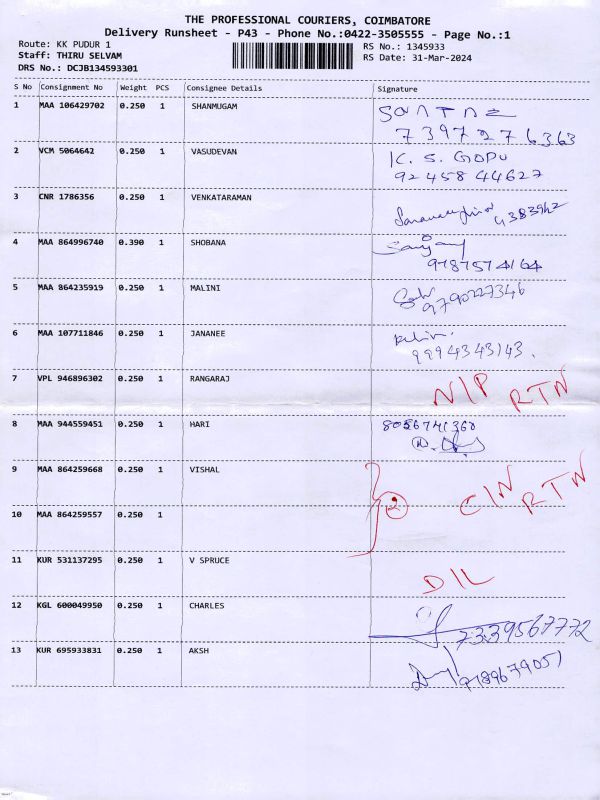 THE PROFESSIONAL COURIERS, COIMBATORE
Delivery Runsheet - P43 - Phone No.:0422-3505555 - Page No.:1
Route: KK PUDUR 1
RS No.: 1345933
Staff: THIRU SELVAM
RS Date: 31-Mar-2024
DRS No.: DCJB134593301
S No Consignment No Weight PCS Consignee Details Signature
1 MAA 106429702 0.250 1 SHANMUGAM
7397276363
2 VCM 5064642 0.250 1 VASUDEVAN K. S. GOPU
9245844627
3 CNR 1786356 0.250 1 VENKATARAMAN
4 MAA 864996740 0.390 1 SHOBANA
9787574164
5 MAA 864235919 0.250 1 MALINI
9790227346
6 MAA 107711846 0.250 1 JANANEE
9994343143.
7 VPL 946896302 0.250 1 RANGARAJ N/P RTN
8 MAA 944559451 0.250 1 HARI 8056741360
9 MAA 864259668 0.250 1 VISHAL
2 C/N RTN
10 MAA 864259557 0.250 1
11 KUR 531137295 0.250 1 V SPRUCE
D/L
12 KGL 600049950 0.250 1 CHARLES
7339567772
13 KUR 695933831 0.250 1 AKSH
9789679051